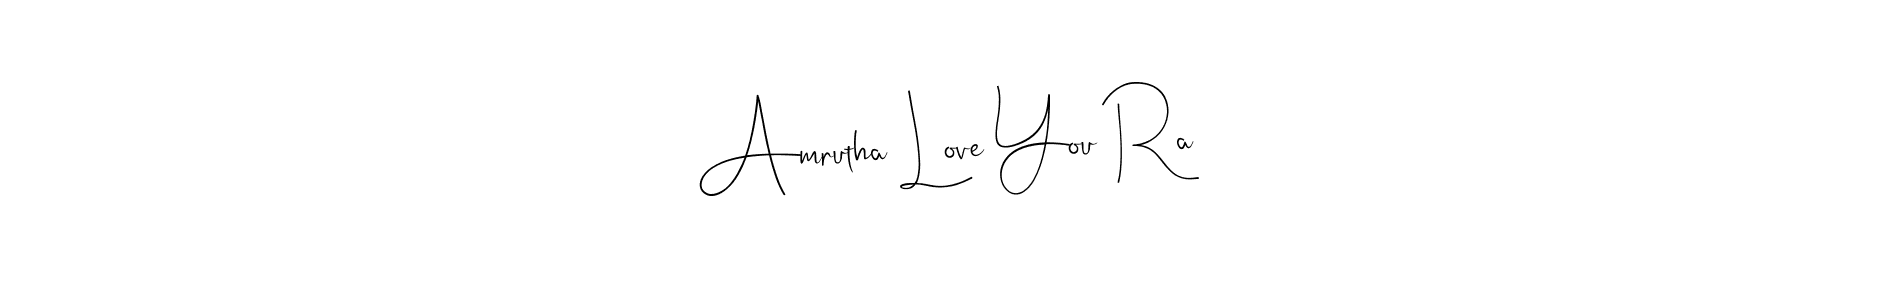 Amrutha Love You Ra